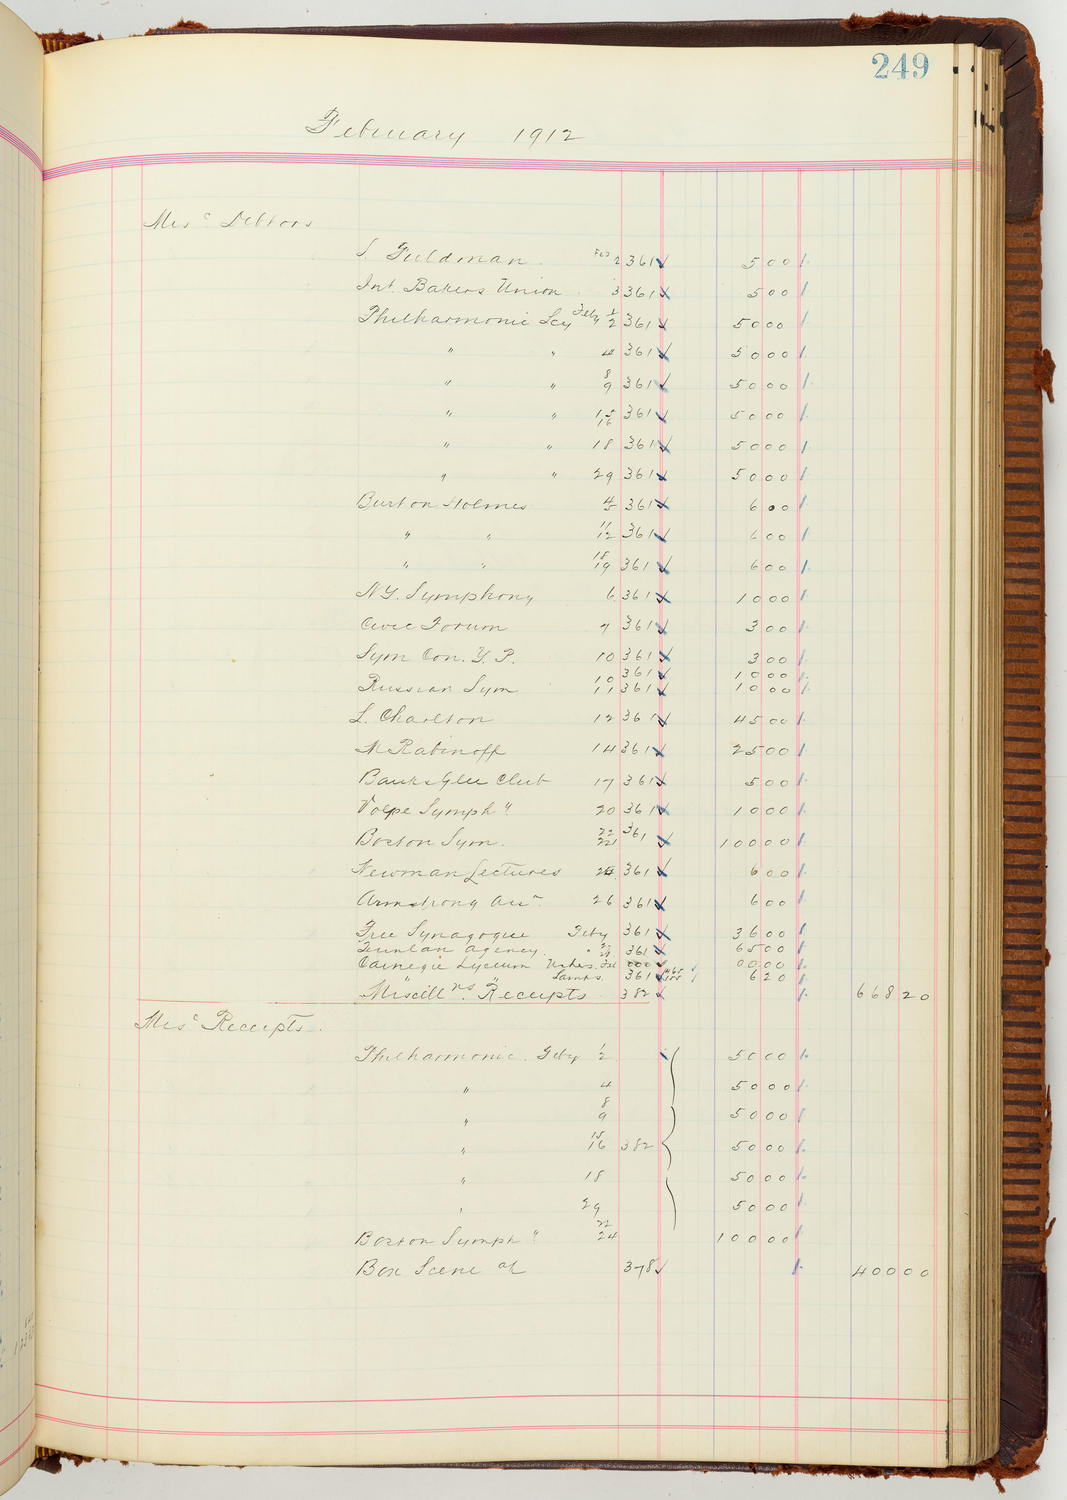 249
February 1912
Misc Debtors
S. Fieldman Feb 2 361 5 00
Int. Bakers Union 3 361 5 00
Philharmonic Scy Feby 1/2 361 50 00
" " 4 361 50 00
" " 8/9 361 50 00
" " 15/16 361 50 00
" " 18 361 50 00
" " 29 361 50 00
Burton Holmes 4/5 361 6 00
" " 11/12 361 6 00
" " 18/19 361 6 00
N.Y. Symphony 6 361 10 00
Civic Forum 7 361 3 00
Sym Con. Y.P. 10 361 3 00
10 361 10 00
Russian Sym 11 361 10 00
L. Charlton 12 361 45 00
M Rabinoff 14 361 25 00
Banks Glee Club 17 361 5 00
Volpe Symphy 20 361 10 00
Boston Sym. 22 361 100 00
Newman Lectures 361 6 00
Armstrong Assn 26 361 6 00
Free Synagogue Feby 361 36 00
Dunlan Agency 361 65 00
Carnegie Lyceum Ushers. Feb 000 00 00
" " Lamps. 361 6 20
Miscillns. Receipts 382 668 20
Misc Receipts
Philharmonic. Feby 1/2 50 00
" 4 50 00
" 8/9 50 00
" 15/16 382 50 00
" 18 50 00
" 29 50 00
Boston Symphy 22/24 100 00
Box Scene a/c 378 400 00